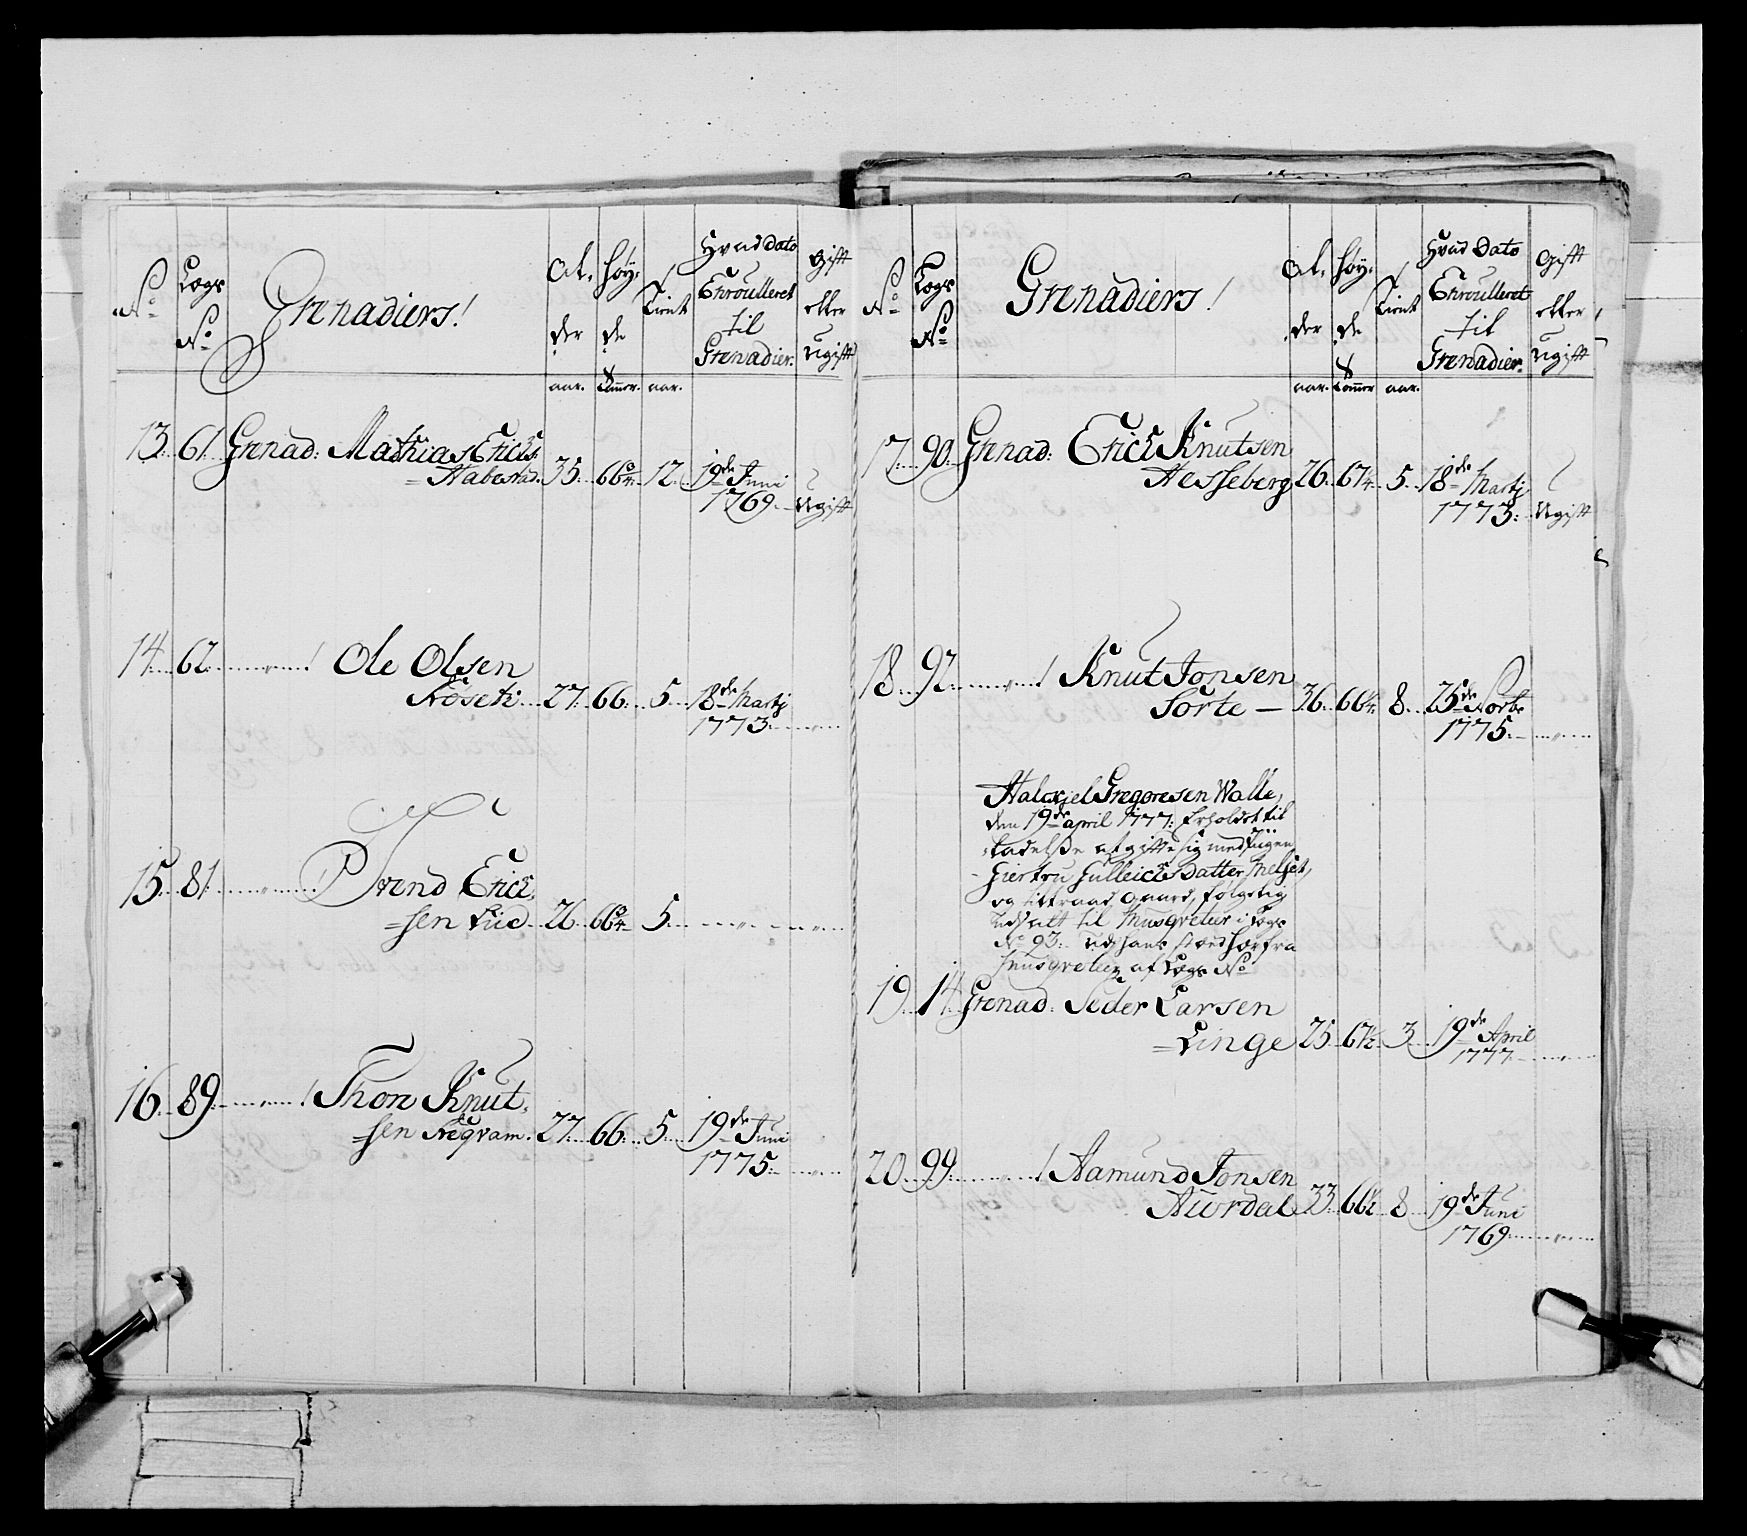 No Lægs No Grenadiers! Al-der Høy-de Tient Hvad Dato Enroulleret til Grenadier. Gift eller Ugift
aar. Tommer. aar.
13. 61. Grenad: Mathias Erichs.
=Haberstad. 35. 66¾ 12. 19de Juni
1769. Ugift
14. 62. Ole Olsen
27. 66. 5. 18de Martj
1773.
15. 81. Svend Erick,
=sen Lie 26. 66¾ 5.
16. 89. Thore Knut,
=sen 27. 66. 5. 19de Juni
1775.
No Lægs No Grenadiers! Al-der Høy-de Tient Hvad Dato Enroulleret til Grenadier. Gift eller Ugift
aar. Tommer aar.
17. 90. Grenad: Erick Knutsen
Hesseberg 26. 67¼ 5. 18de Martj
1773. Ugift
18. 92. Knut Jonsen
Torte — 36. 66¼ 8. 25de
1775.
Halckjel Gregoresen Walle,
den 19de april 1777: Erholdet til
=ladelsse at gifte sig med Pigen
Giertru Gulleicks Datter Melset,
og tiltraad Gaard, følgelig
udsatt til Musqveteur i Lægs
No 93: udj hans sted herfra
Musqveteur af Lægs No
19. 14. Grenad: Peder Larsen
=Linge 25. 67½ 3. 19de April
1777.
20. 99. Aamund Jonsen
Aurdal 33. 66½ 8. 19de Juni
1769.